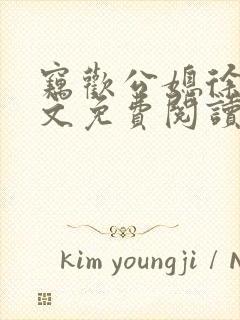 竊歡公媳徐
文免費閱讀
kim youngji / N